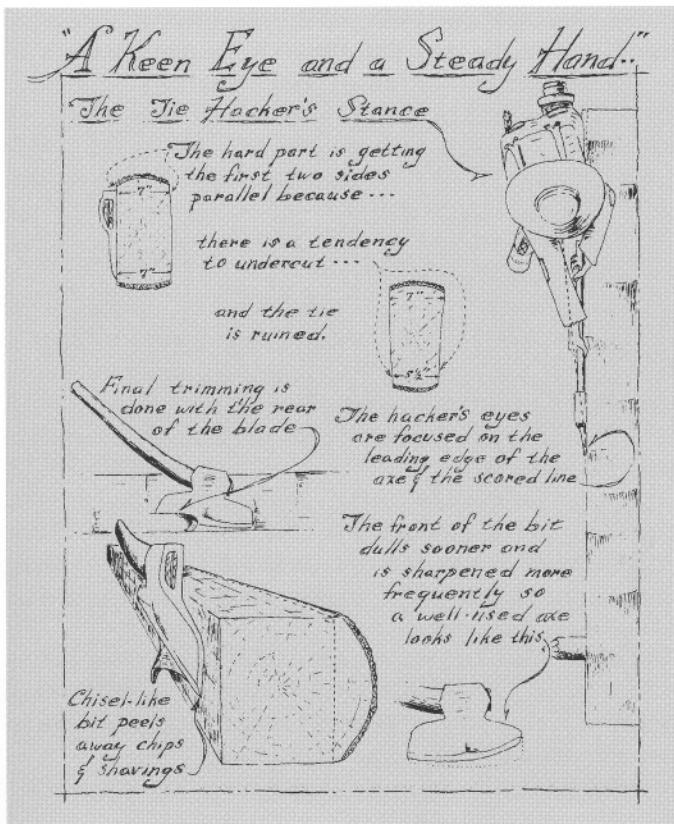 "A Keen Eye and a Steady Hand.."
The Tie Hacker's Stance
The hard part is getting
the first two sides
parallel because ...
7"
7"
there is a tendency
to undercut ...
7"
5½"
and the tie
is ruined.
Final trimming is
done with the rear
of the blade
The hacker's eyes
are focused on the
leading edge of the
axe & the scored line
The front of the bit
dulls sooner and
is sharpened more
frequently so
a well-used axe
looks like this
Chisel-like
bit peels
away chips
& shavings